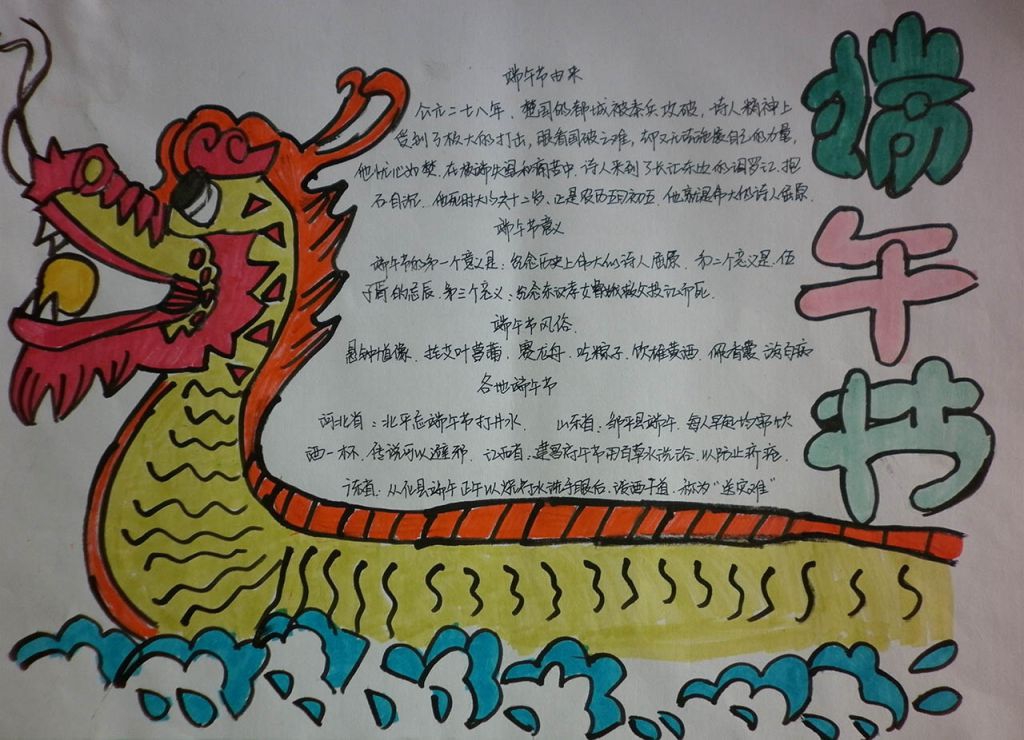 端午节
端午节由来
公元二七八年，楚国的都城被秦兵攻破，诗人精神上
受到了极大的打击，眼看国破之难，却又无法施展自己的力量，
他忧心如焚，在极端失望和痛苦中，诗人来到了长江东边的汨罗江，抱
石自沉，他死时大约六十二岁，正是农历五月初五，他就是伟大的诗人屈原
端午节意义
端午节的第一个意义是：纪念历史上伟大的诗人屈原，第二个意义是：伍
子胥的忌辰，第三个意义：纪念东汉孝女曹娥救父投江而死
端午节风俗
悬钟馗像，挂艾叶菖蒲，赛龙舟，吃粽子，饮雄黄酒，佩香囊，游百病
各地端午节
河北省：北平忌端午节打井水 山东省：邹平县端午，每人早起均需饮
酒一杯，传说可以避邪 江西省：建昌府午节用百草水洗浴，以防止疥疮
从化县端午正午以烧符水洗手眼后，泼洒于道，称为“送灾难”